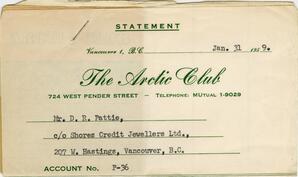 STATEMENT
Vancouver 1, B.C. Jan. 31 1959.
The Arctic Club
724 WEST PENDER STREET – TELEPHONE: MUTUAL 1-9029
Mr. D. R. Pattie,
c/o Shores Credit Jewellers Ltd.,
207 W. Hastings, Vancouver, B.C.
ACCOUNT NO. P-36